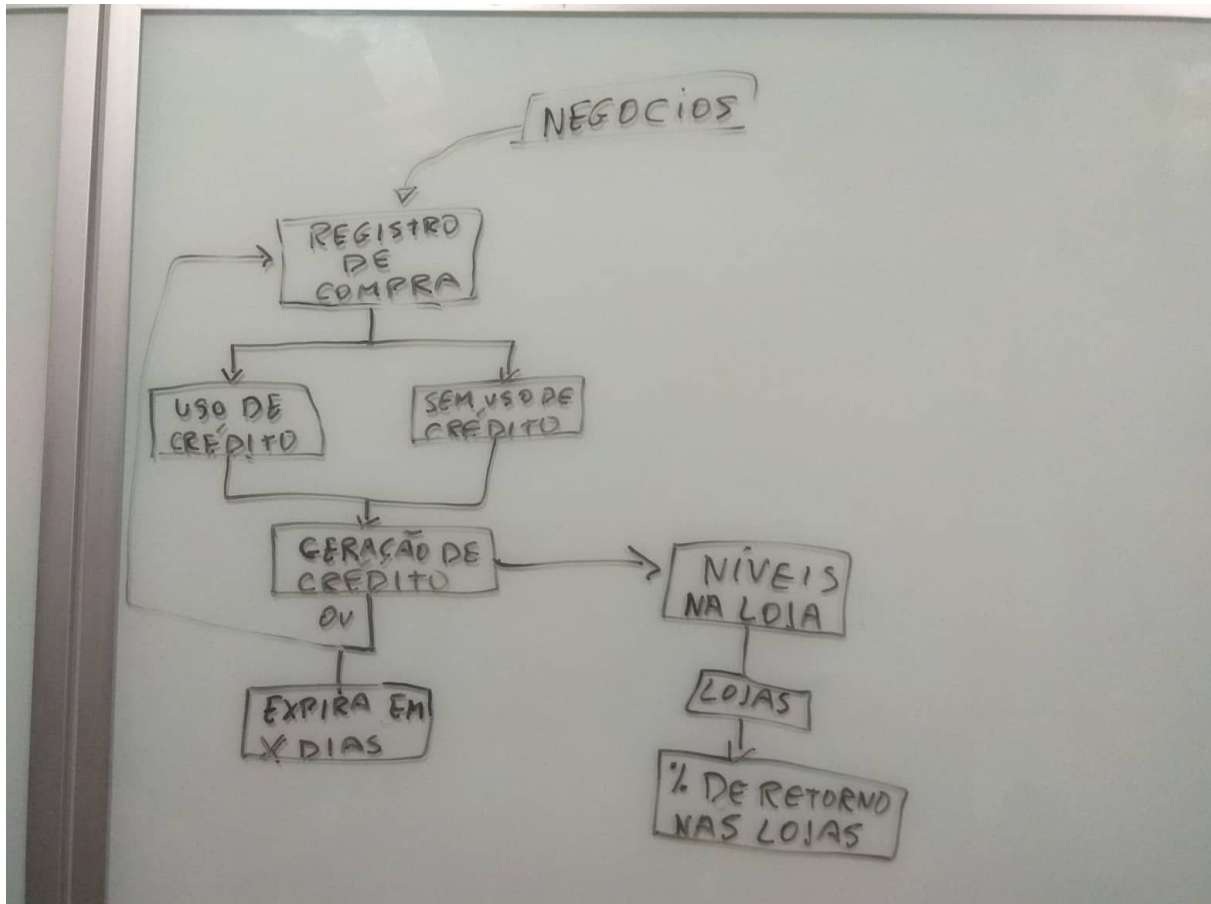 NEGOCIOS
REGISTRO
DE
COMPRA
USO DE
CRÉDITO
SEM USO DE
CRÉDITO
GERAÇÃO DE
CRÉDITO
OU
EXPIRA EM
X DIAS
NÍVEIS
NA LOJA
LOJAS
% DE RETORNO
NAS LOJAS